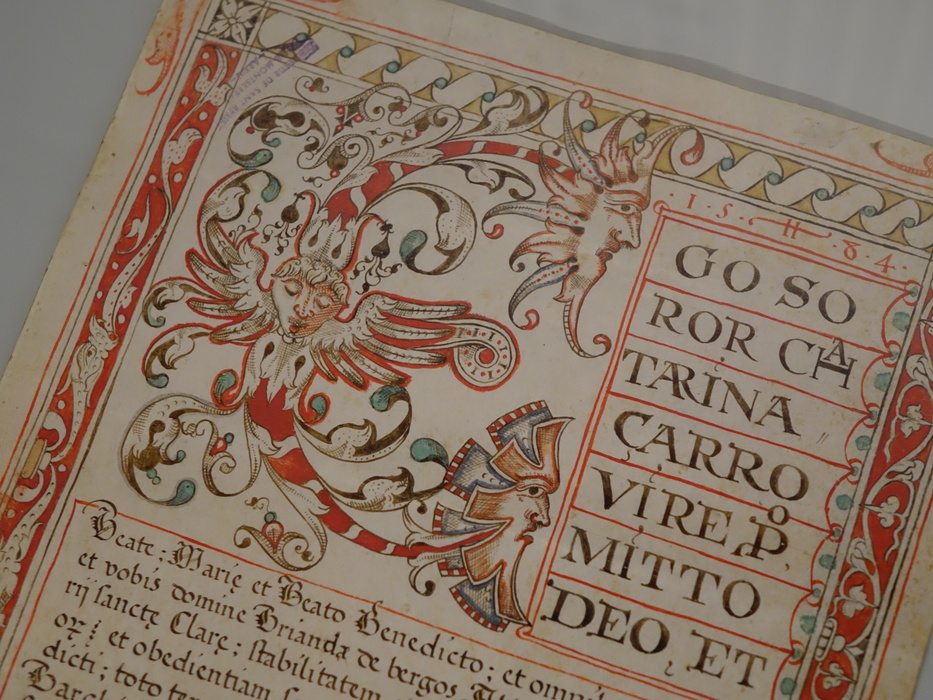 ·1·5·H·8·4·
GO SO
ROR CHA
TARINA
CARRO
VIRE P
MITTO
DEO, ET
Beate: Marię et Beato Benedicto; et
et vobis domine Brianda de bergos
rij sanctę Clarę; stabilitatem
et obedientiam
dicti; toto